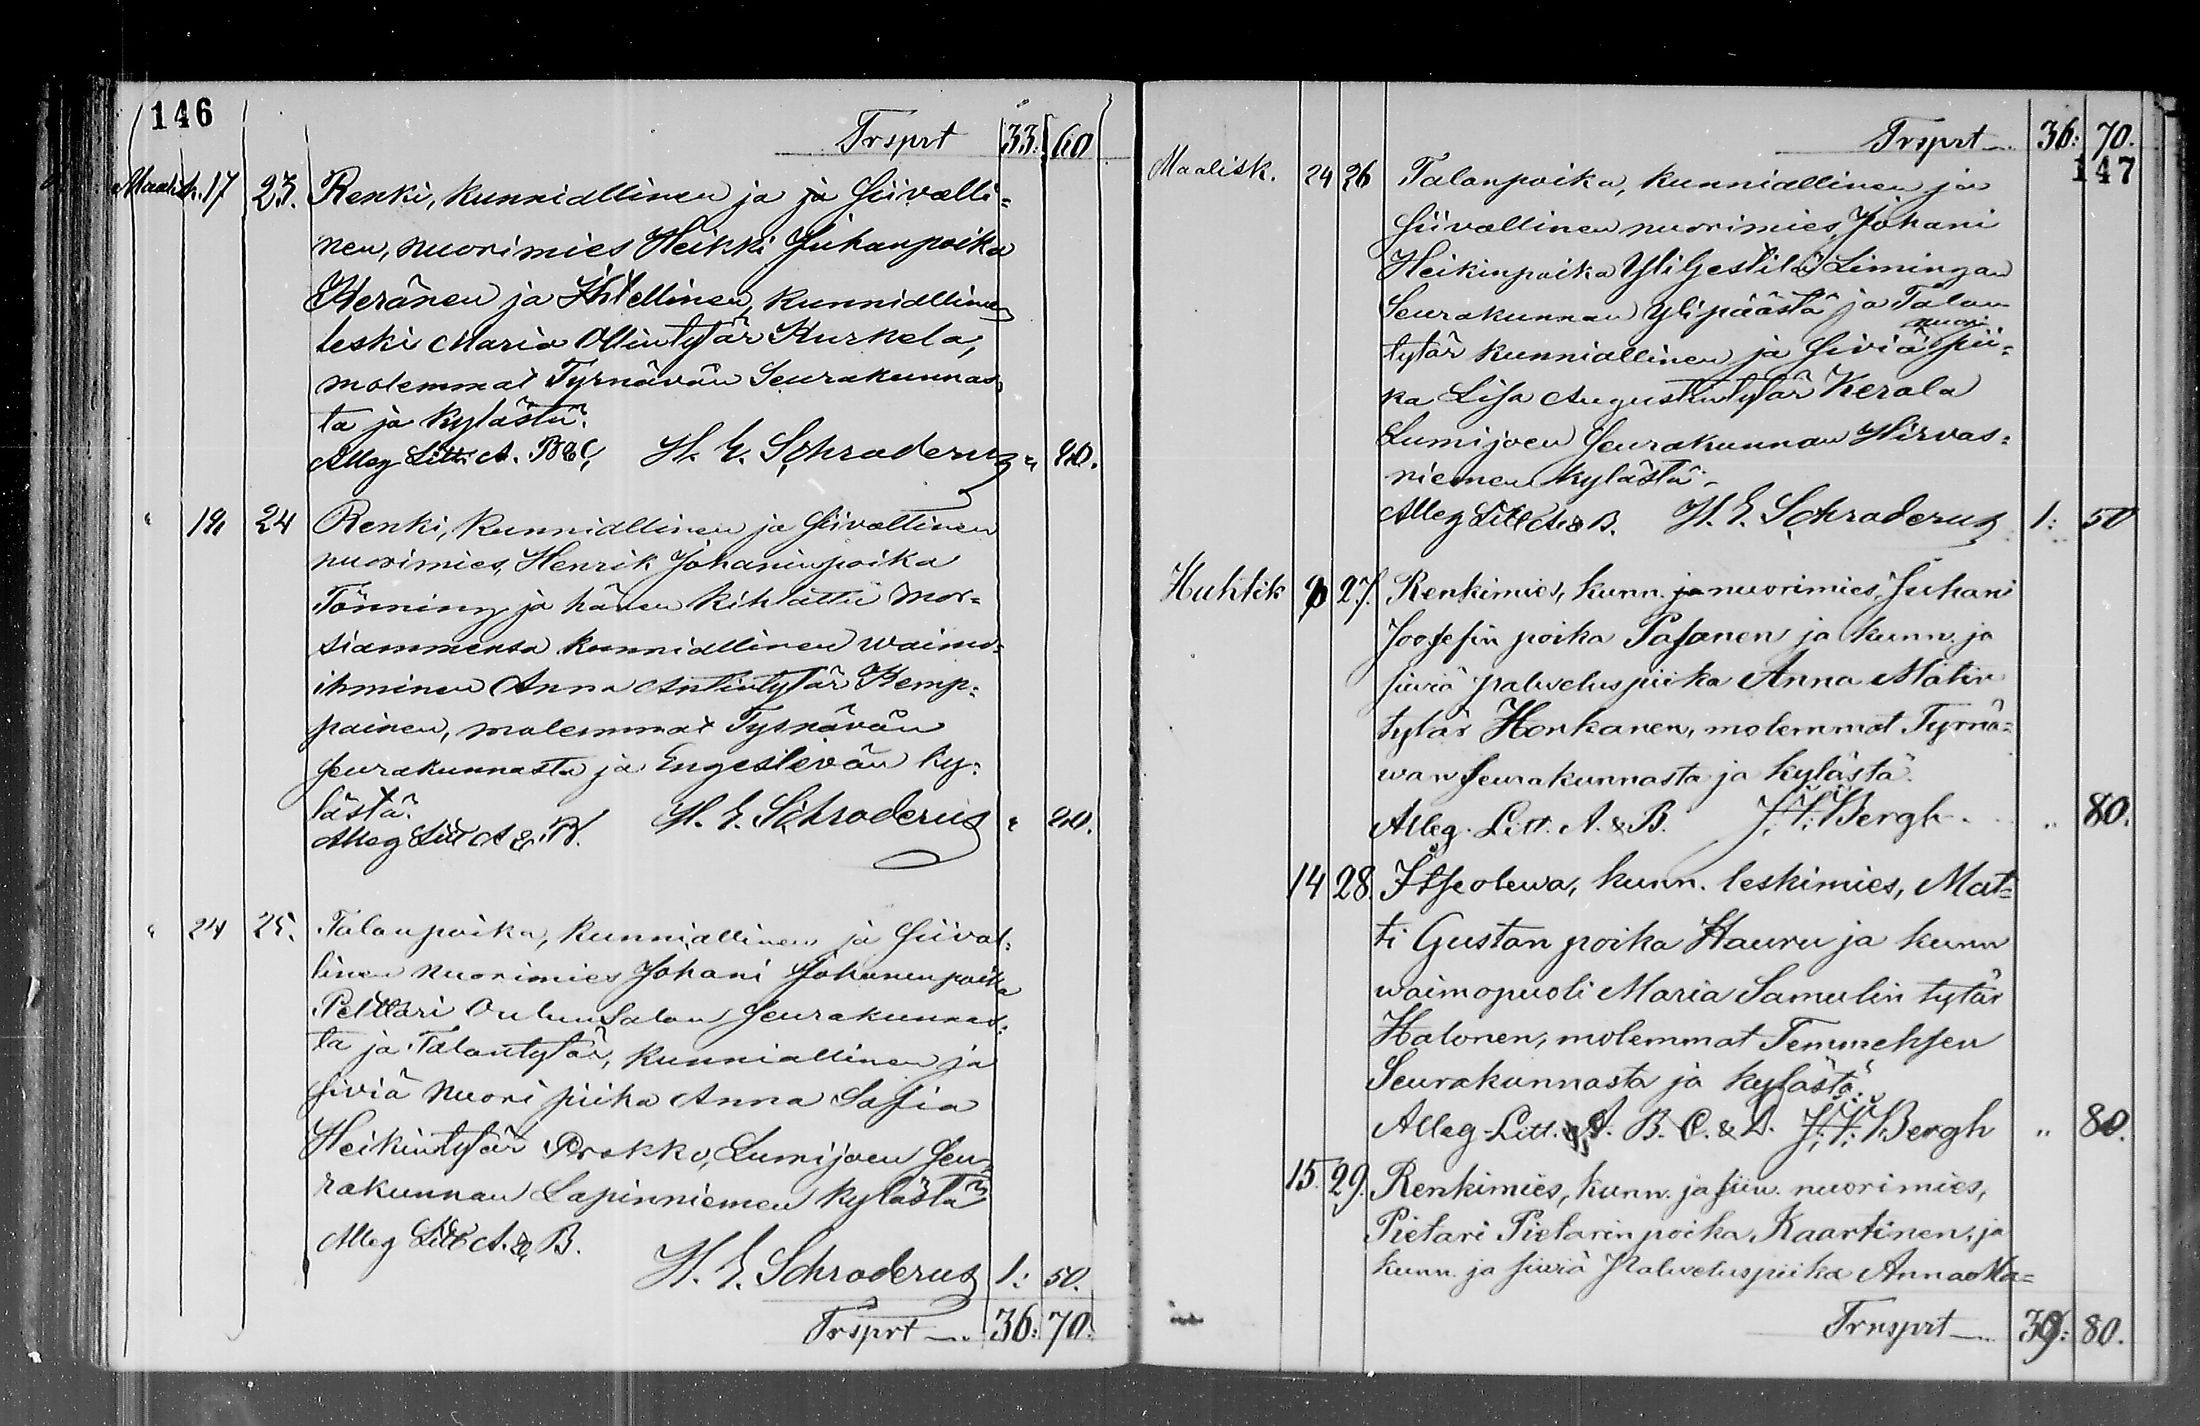 146
Trsprt 33: 60
Maalisk. 17 23. Renki, kunniallinen ja ja siivalli=
nen, nuorimies Heikki Juhanpoika
Keränen ja Ihtellinen, kunniallinen
leski Maria Ollintytär Kurkela,
molemmat Tyrnävän Seurakunnas=
ta ja kylästä.
Alleg Litt. A. B & C, H. E. Schroderus " 80.
" 19 24 Renki, kunniallinen ja siivallinen
nuorimies, Henrik Johaninpoika
Tönning ja hänen kihlattu mor=
siammensa kunniallinen waimo=
ihminen Anna Antintytär Kemp=
painen, molemmat Tyrnävän
seurakunnasta ja Engeslevän ky=
lästä.
Alleg Litt A & B. H. E. Schroderus " 80.
" 24 25. Talonpoika, kunniallinen ja siival=
linen nuorimies Johani Johanenpoika
Pelttari Oulunsalon seurakunnas=
ta ja Talontytär, kunniallinen ja
siviä nuori piika Anna Sofia
Heikintytär Prokko, Lumijoen seu=
rakunnan Lapinniemen kylästä
Alleg Litt A. & B.
H. E. Schroderus 1: 50.
Trsprt 36: 70.
Trsprt 36: 70.
147
Maalisk. 24 26 Talonpoika, kunniallinen ja
siivallinen nuorimies, Johani
Heikinpoika Yligestilä Limingan
Seurakunnan Ylipäästä ja Talon
tytär kunniallinen ja siviä nuori pii=
ka Lisa Augustintytär Kerala
Lumijoen seurakunnan Hirvas=
niemen kylästä.
Alleg Litt A & B. H. E. Schroderus 1: 50
Huhtik 9 27. Renkimies, kunn. ja nuorimies, Juhani
Joosefin poika Pasanen ja kunn. ja
siwiä palweluspiika Anna Matin
tytär Honkanen, molemmat Tyrnä=
wan seurakunnasta ja kylästä.
Alleg. Litt. A. & B. J. V. Bergh. " 80.
14 28. Itseolewa, kunn. leskimies, Mat=
ti Gustan poika Hauru ja kunn
waimopuoli Maria Samulin tytär
Halonen, molemmat Temmeksen
Seurakunnasta ja kylästä.
Alleg. Litt. A. B. C. & D. J. V. Bergh " 80.
15. 29. Renkimies, kunn. ja siiw. nuorimies,
Pietari Pietarin poika Kaartinen, ja
kunn. ja siwiä Palweluspiika Anna Ma=
Trnsprt 39: 80.